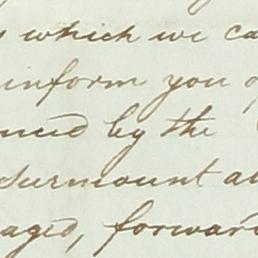 which we ca
inform you o
nced by the
surmount al
aged, forward